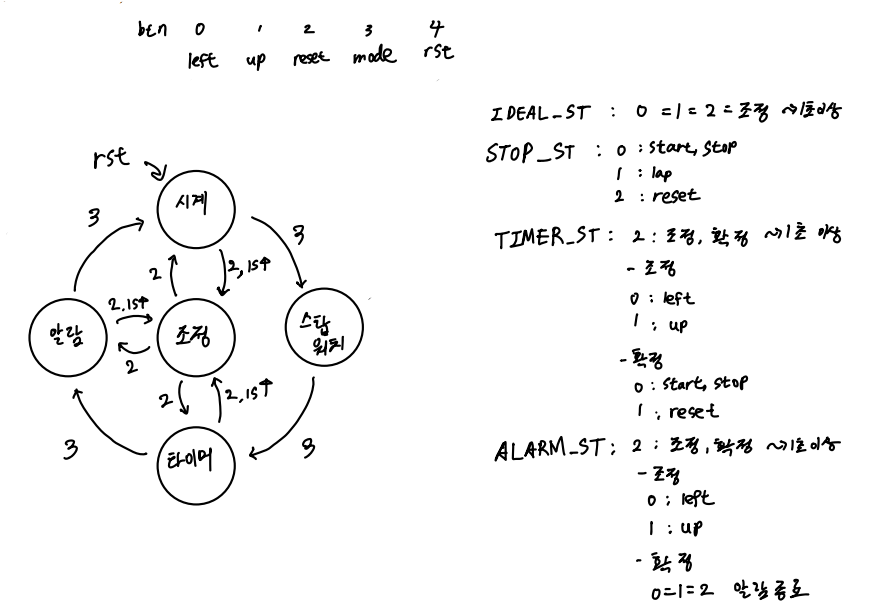 btn 0 1 2 3 4
left up reset mode rst
rst
시계
3
3
2
2, 1s↑
알람
2, 1s↑
2
조정
스탑
워치
2
2, 1s↑
3
3
타이머
IDEAL_ST : 0 = 1 = 2 = 조정 ~>1초이상
STOP_ST : 0 : start, stop
1 : lap
2 : reset
TIMER_ST : 2 : 조정, 확정 ~>1초 이상
- 조정
0 : left
1 : up
- 확정
0 : start, stop
1 : reset
ALARM_ST : 2 : 조정, 확정 ~>1초이상
- 조정
0 : left
1 : up
- 확정
0=1=2 알람종료